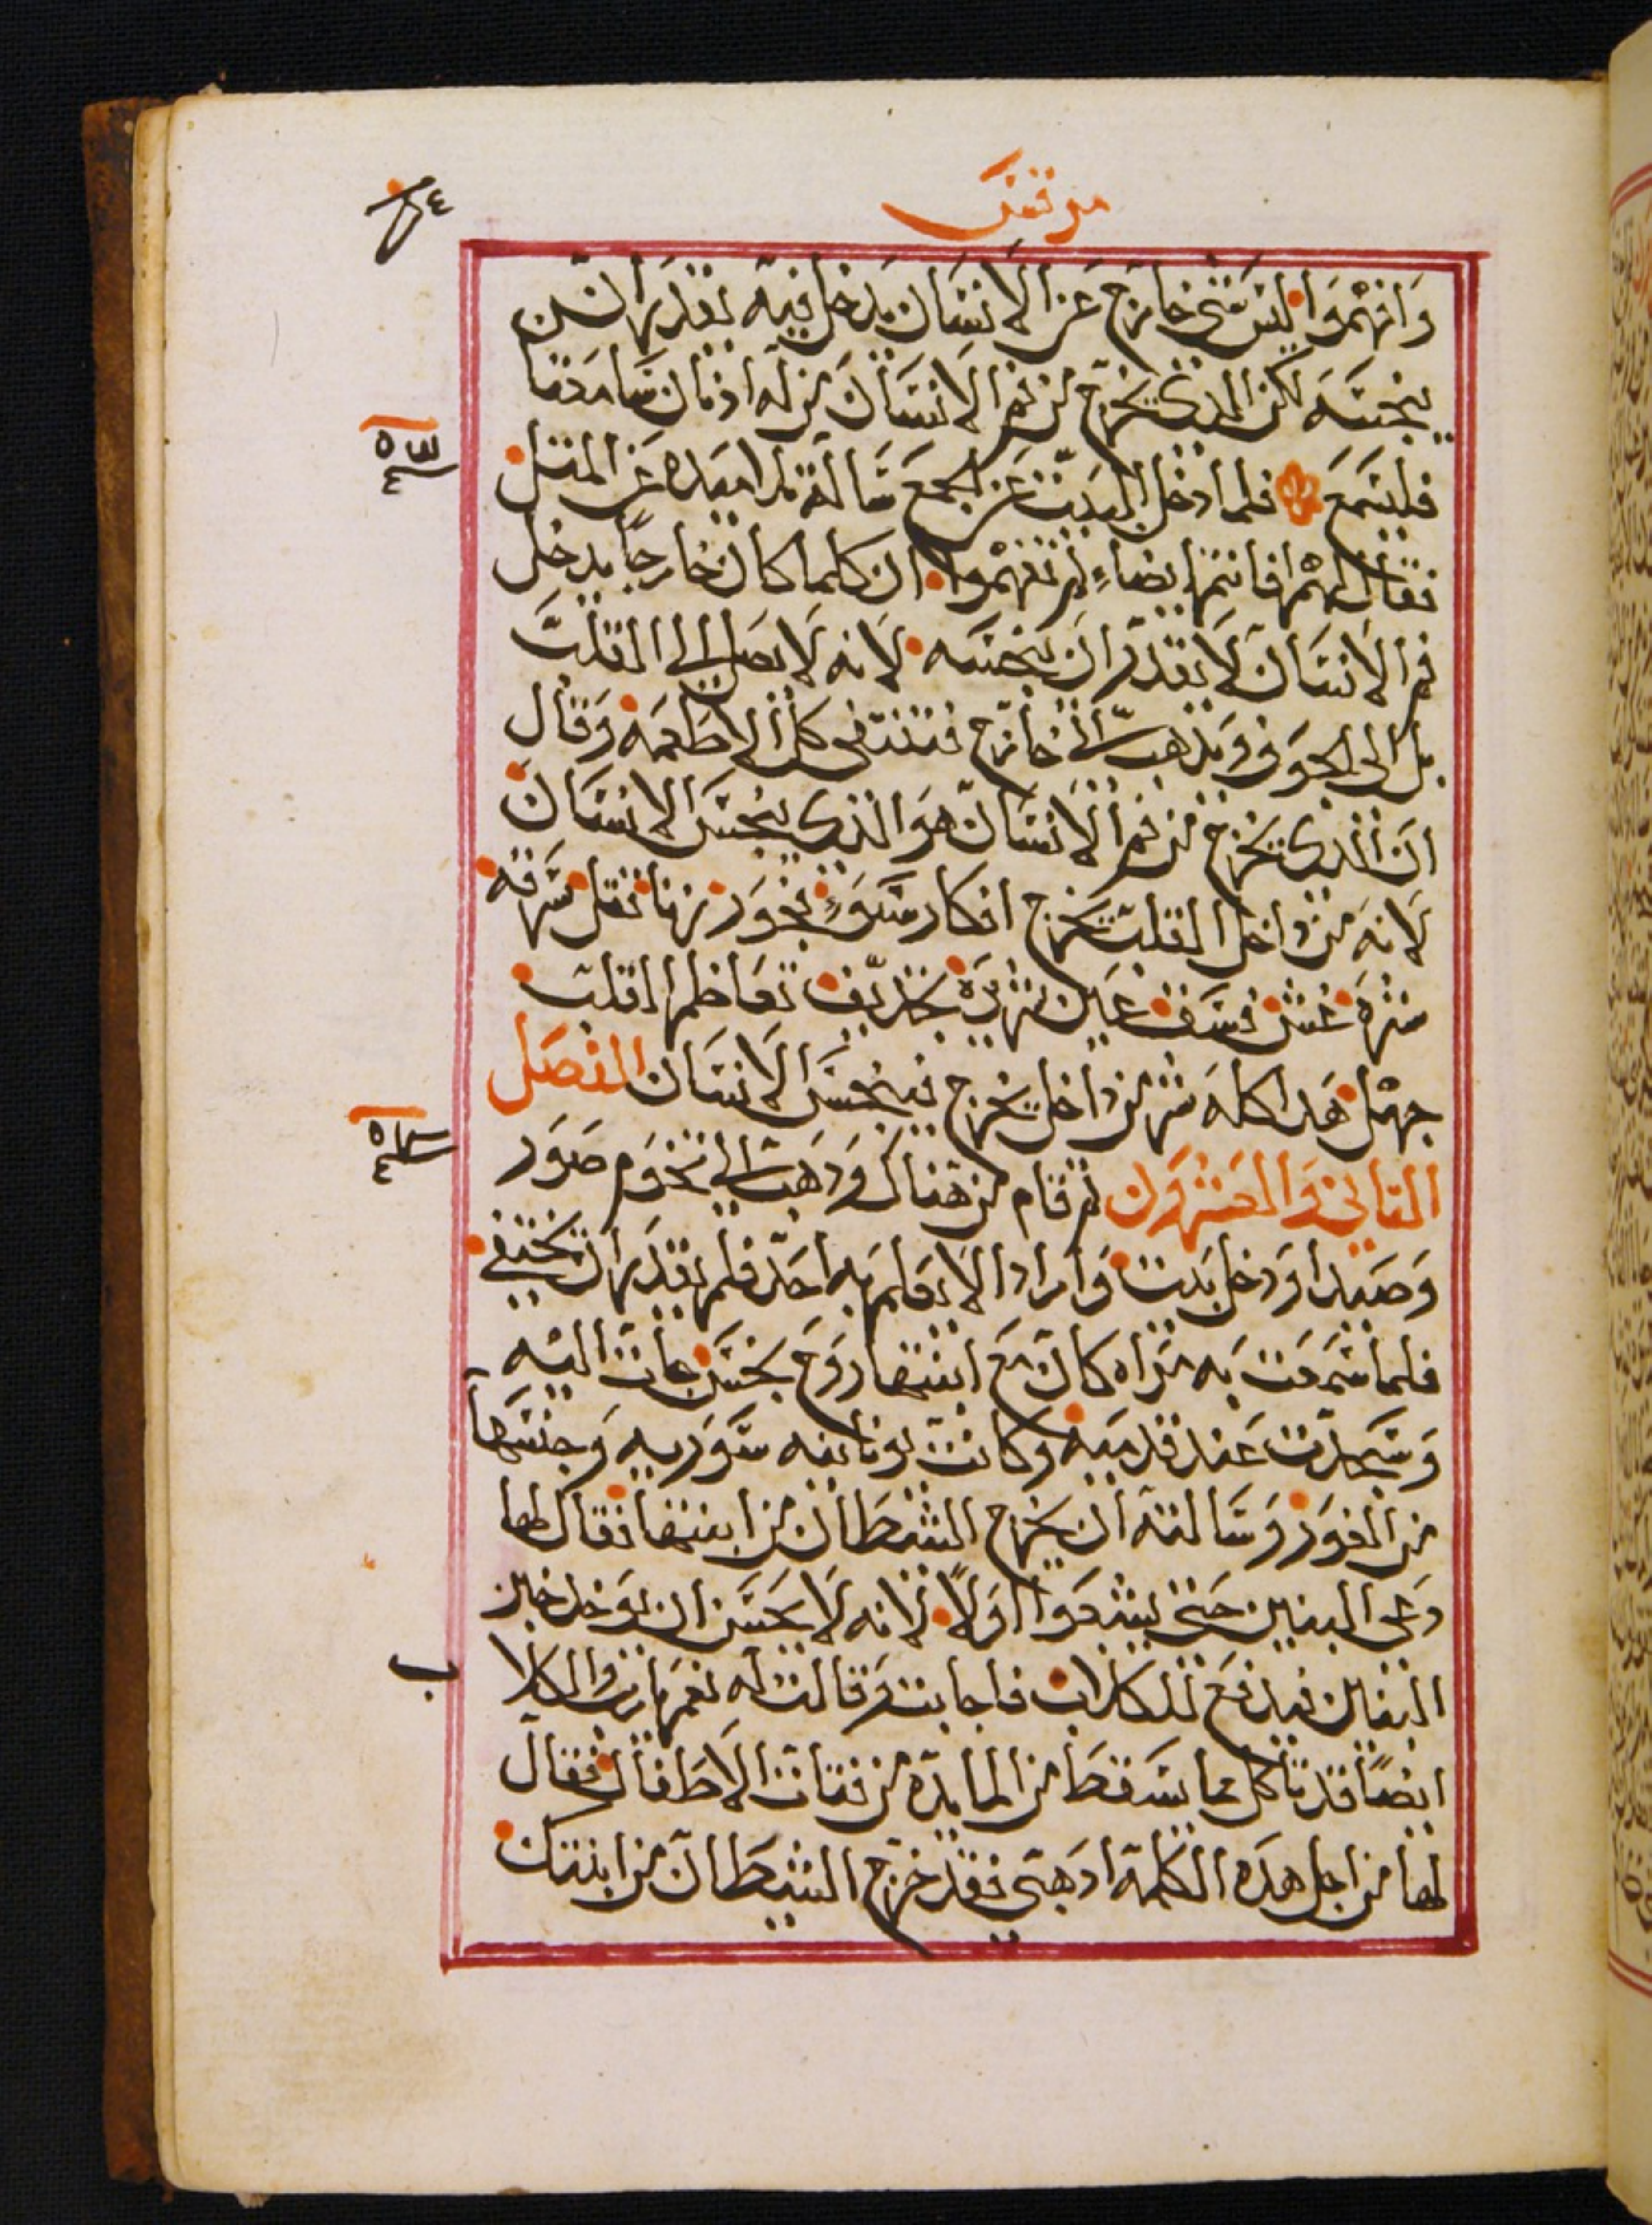 مرقس
وافهموا ليس شي خارج عن الانسان يدخل فيه يقدر ان
ينجسه لكن الذي يخرج من فم الانسان من له اذنان سامعتان
فليسمع فلما دخل البيت عن الجمع سالة تلاميده عن المتل
فقال لهم افانتم ايضاء لم تفهموا ان كلما كان خارجاً يدخل
فم الانسان لا يقدر ان ينجسه لانه لا يصل الى القلب
بل الى الجوف ويذهب الى خارج فتنقي كل الاطعمه وقال
ان الذي يخرج من فم الانسان هو الذي ينجس الانسان
لانه من داخل القلب تخرج افكار سوء فجور زنا قتل سرقه
شره غش فسق عين شريره تجديف تعاظم القلب
جهل هدا كله شر من داخل يخرج فينجس الانسان الفصل
التاني والعشرون تم قام من هناك ودهب الى تخوم صور
وصيدا ودخل بيت واراد الا يعلم به احد فلم يقدر ان يختفي
فلما سمعت به مراه كان مع ابنتها روح نجس جات اليه
وسجدت عند قدميه وكانت يونانيه سوريه وجنسها
من الغور وسالته ان يخرج الشيطان من ابنتها فقال لها
دعي البنين حتى يشبعوا اولاً لانه لا يحسن ان يوخد خبز
البنين فيدفع للكلاب فاجابت وقالت له نعم يارب والكلا
ب
ايضاً قد تاكل مما يسقط من المايده من فتات الاطفال فقال
لها من اجل هده الكلمة ادهبي فقد خرج الشيطان من ابنتك